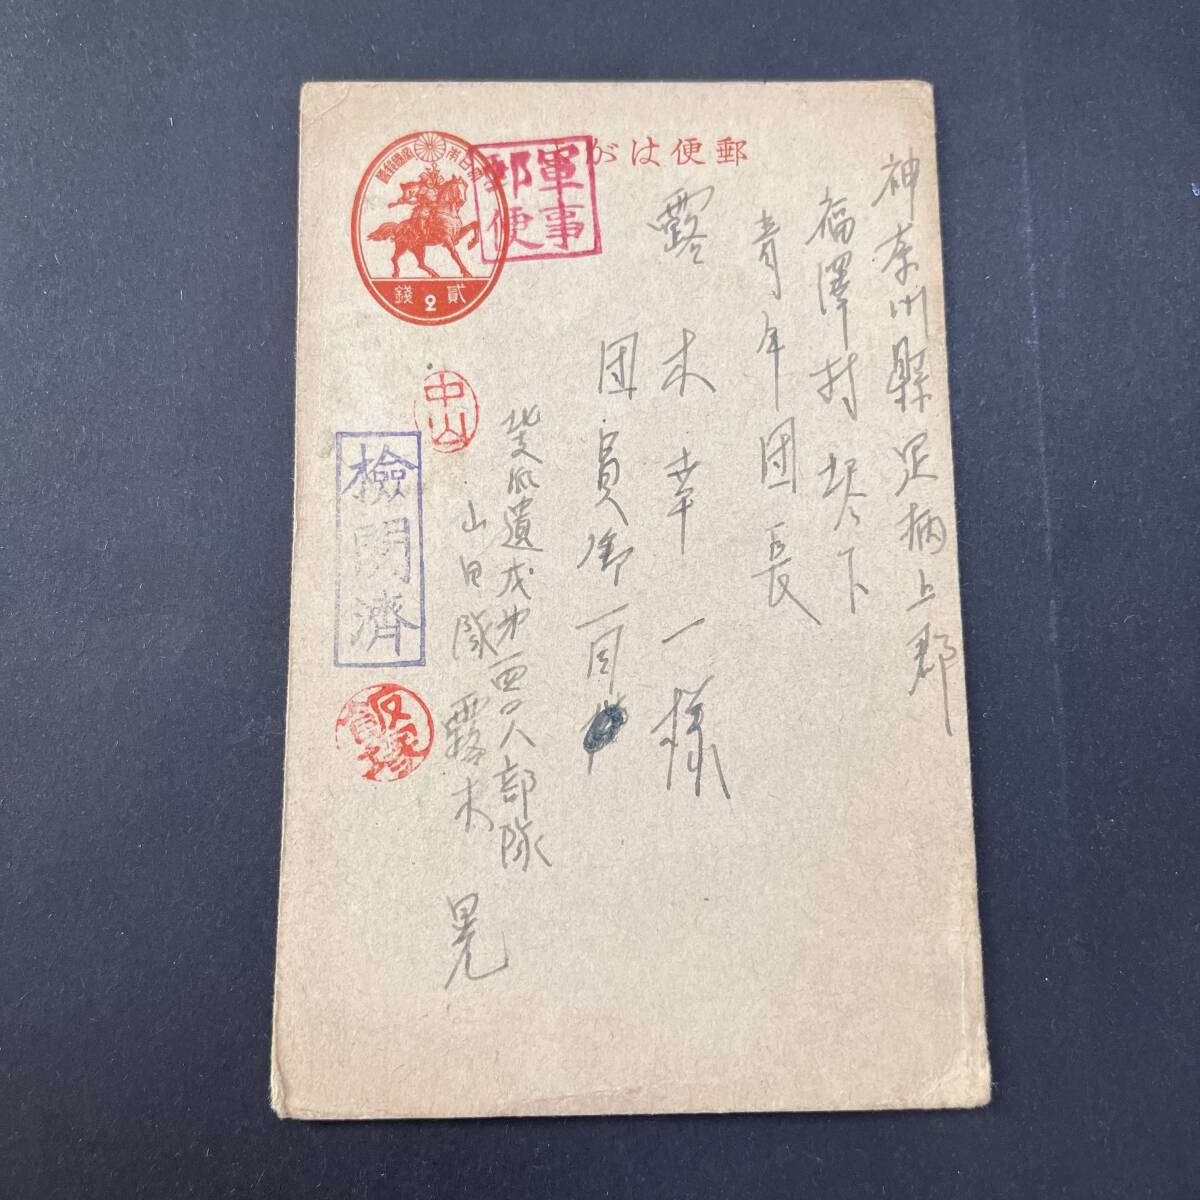 郵便はがき
軍事
郵便
大日本帝國郵便
貳2錢
神奈川縣足柄上郡
福澤村
青年団長
露木幸一様
団員御一同
北支派遣戊第一四〇八部隊
山田隊 露木晃
中山
檢閲濟
飯塚